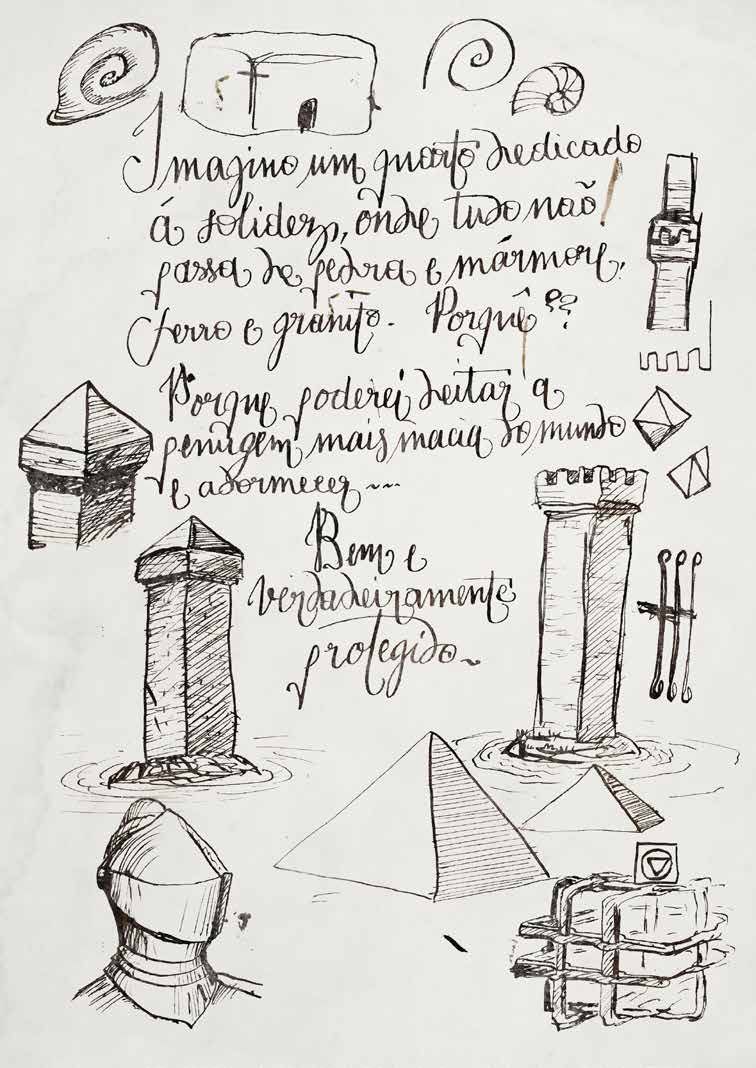 Imagino um quarto dedicado
á solidez, onde tudo naõ
passa de pedra e mármore,
ferro e granito. Porquê??
Porque poderei deitar a
penugem mais macia do mundo
e adormecer ~~~
Bem e
verdadeiramente
protegido~